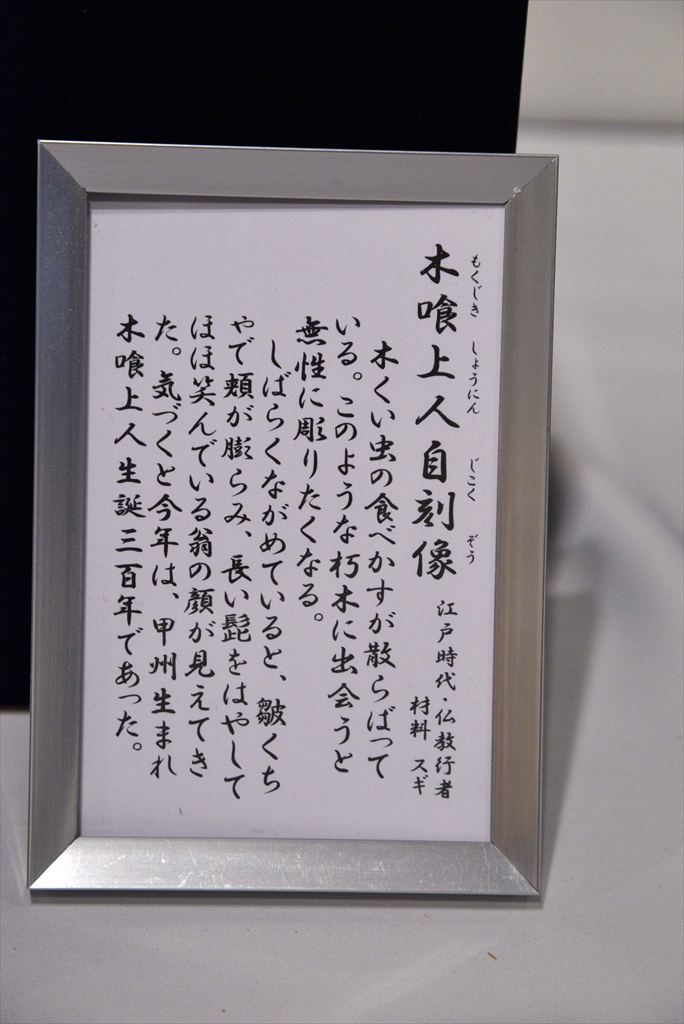 木喰上人自刻像
もくじき しょうにん じこく ぞう
江戸時代・仏教行者
材料 スギ
木くい虫の食べかすが散らばって
いる。このような朽木に出会うと
無性に彫りたくなる。
しばらくながめていると、皺くち
ゃで頬が膨らみ、長い髭をはやして
ほほ笑んでいる翁の顔が見えてき
た。気づくと今年は、甲州生まれ
木喰上人生誕三百年であった。